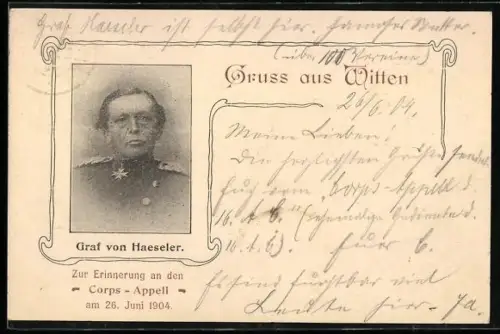 Graf Haeseler ist selbst hier. Famoses Wetter.
(über 100 Vereine)
Gruss aus Witten
26/6. 04.
Meine Lieben!
Die herzlichsten Grüße sendet
Euch vom "Corps-Appell d.
16. A. C." (Ehemalige Gedienten d.
16. A. C). Euer C.
Es sind furchtbar viel
Leute hier. Ja.
Graf von Haeseler.
Zur Erinnerung an den
Corps - Appell
am 26. Juni 1904.